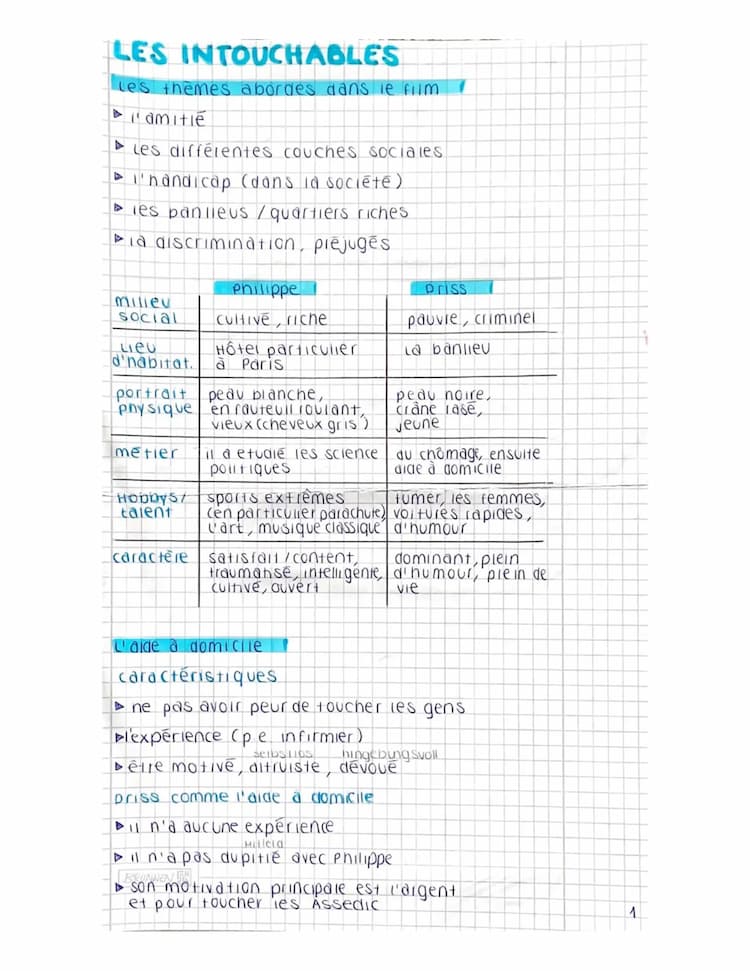 LES INTOUCHABLES
Les thèmes abordes dans le film
l'amitié
Les différentes couches sociales
l'handicap (dans la société)
les banlieus / quartiers riches
la discrimination, préjugés
Philippe Driss
milieu social cultivé, riche pauvre, criminel
Lieu d'habitat. Hôtel particulier à Paris La banlieu
portrait physique peau blanche, en fauteuil roulant, vieux (cheveux gris) peau noire, crâne rasé, jeune
métier il a etudié les science politiques au chômage, ensuite aide à domicile
Hobbys/ talent sports extrêmes (en particulier parachute) L'art, musique classique fumer, les femmes, voitures rapides, d'humour
caractère satisfait/content, traumatisé, intelligente, cultivé, ouvert dominant, plein d'humour, plein de vie
L'aide à domicile
caractéristiques
ne pas avoir peur de toucher les gens
l'expérience (p.e. infirmier)
selbstlos hingebungsvoll
être motivé, altruiste, dévoué
Driss comme l'aide à domicile
il n'a aucune expérience
Mitleid
il n'a pas du pitié avec Philippe
son motivation principale est l'argent
et pour toucher les Assedic
1